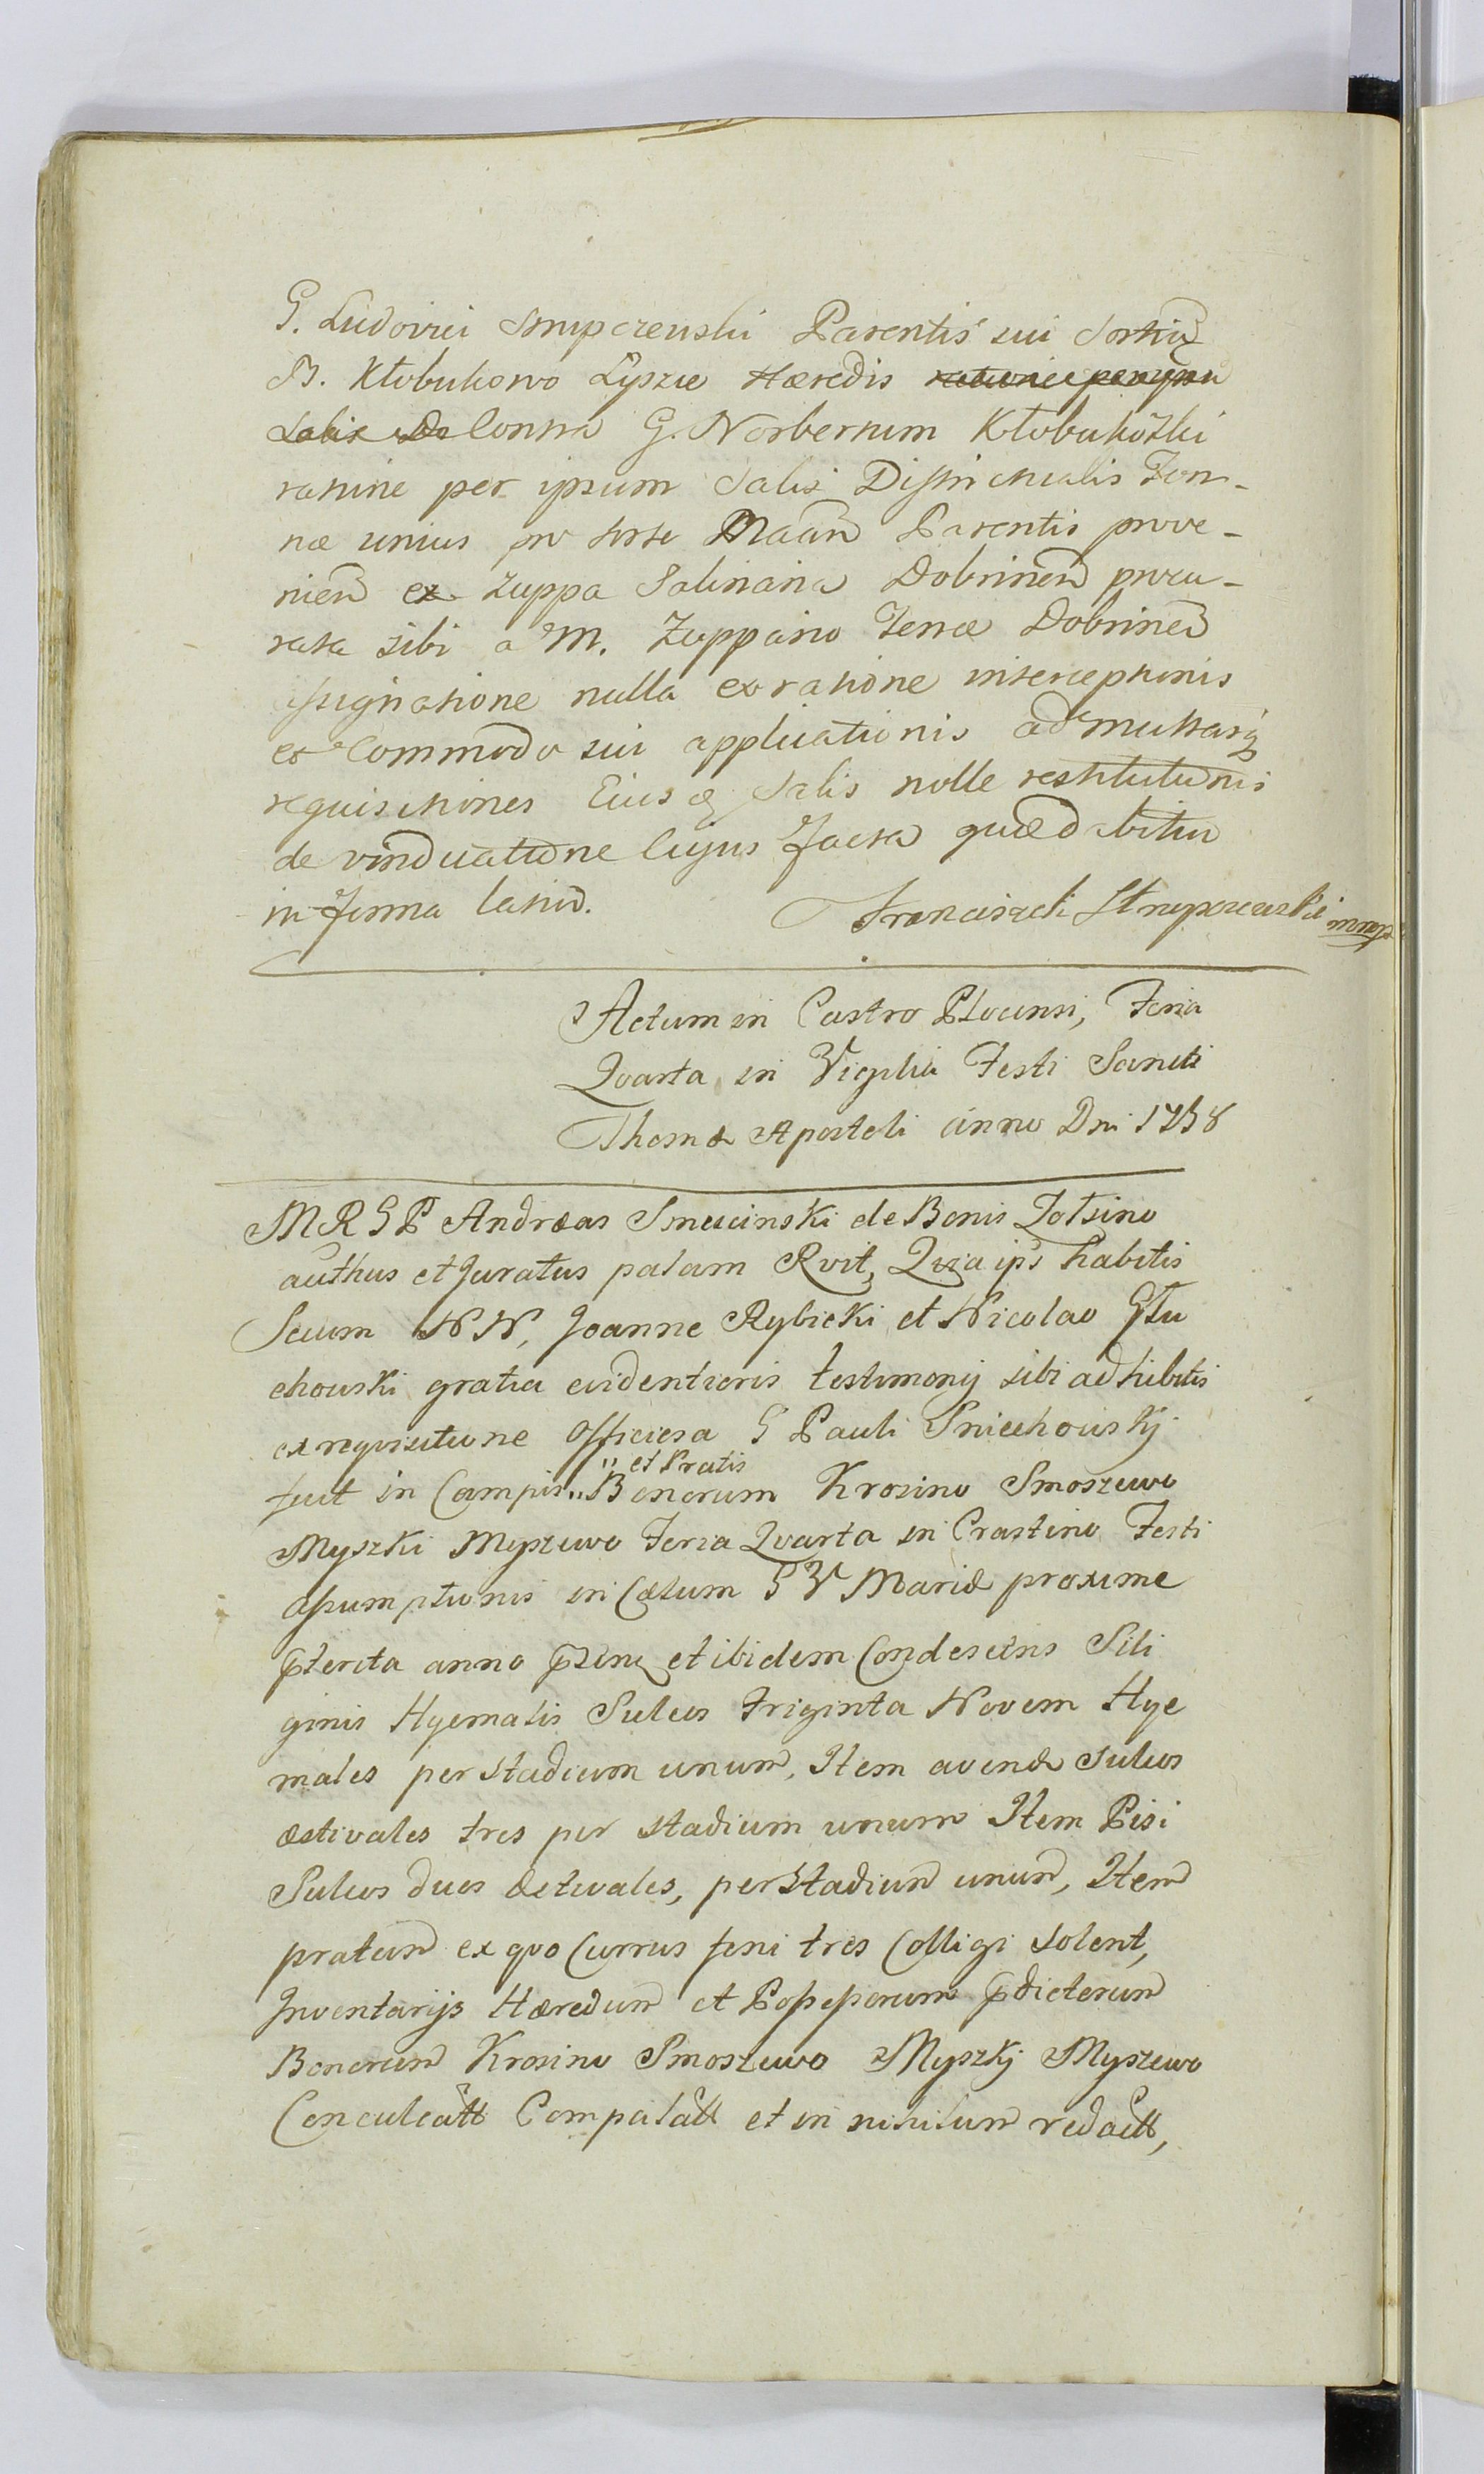 G. Ludovici Strupczewski Parentis sui Sortis
B. Kłobukowo Łyszie Hæredis ratione per ipsu
Salis Do Contra G. Norbertum Kłobukowski
ratione per ipsum Salis Districtualis Ton-
næ unius pro sorte Maãn Parentis prove-
nien̄ ex Zuppa Salinaria Dobrinen̄ procu-
rata sibi a M. Zuppario Terræ Dobrinen̄
assignatione nulla ex ratione interceptionis
et Commodo sui applicationis ad multasq
requisitiones Eiusq Salis nolle restitutionis
de vinducatione Cujus facta quæd abitur
in forma latiud.
Franciszek Strupczewski mmp
Actum in Castro Plocensi, Feria
Qvarta in Vigilia Festi Sancti
Thomæ Apostoli anno Dni 1758
MRGP Andræas Smucinski de Bonis Zotsino
authus et Juratus palam Rvit, Qvia ips habitis
Secum NN, Joanne Rybicki et Nicolao Głu
chowski gratia evidentioris testimonij sibi adhibitis
ex reqvisitione Officiosa G Pauli Sniechowskij
fuit in Campis „ et Pratis „ Bonorum Krosino Smoszewo
Myszki Myszewo Feria Qvarta in Crastino Festi
Assumptionis in Cælum BV Mariæ proxime
p̄terita anno p̄senz et ibidem Condescens Sili
ginis Hyemalis Sulcos triginta Novem Hye
males per stadium unum, Item avenæ Sulcos
æstivales tres per stadium unum Item Pisi
Sulcos duos æstivales, per stadium unum, Item
pratum ex qvo Currus feni tres Colligi solent,
Inventarijs Hæredum et Possessorum p̄dictorum
Bonorum Krosino Smoszewo Myszkij Myszewo
Conculcātt Compalātt et in nihilum redāctt,